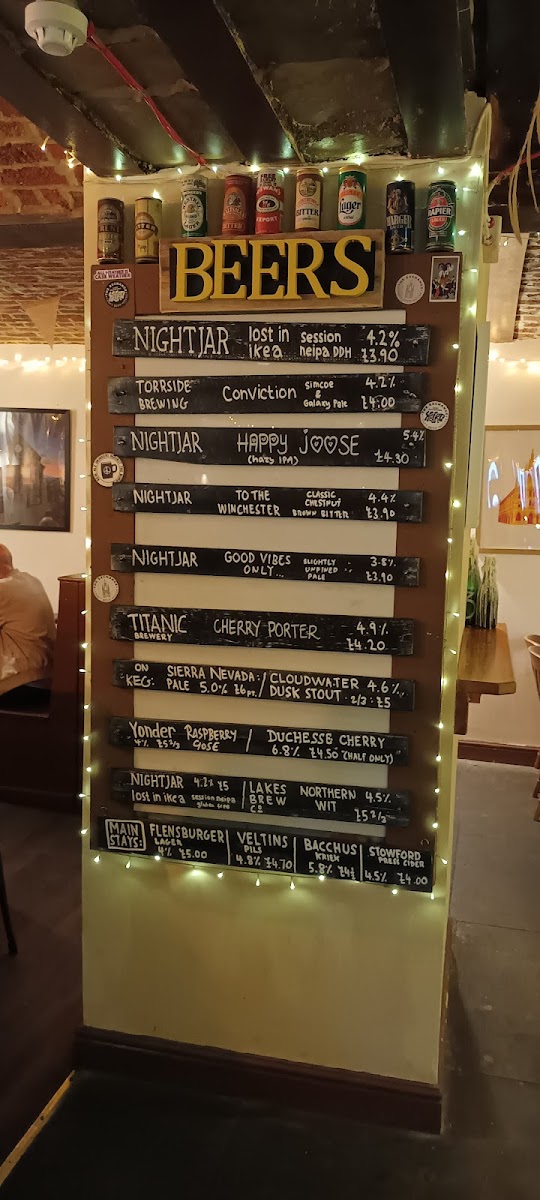 BITTER
EXPORT
BITTER
Lager
CHARGER
RAPIER
BEERS
NIGHTJAR lost in ikea session neipa DDH 4.2% £3.90
TORRSIDE BREWING Conviction Simcoe & Galaxy Pale 4.2% £4.00
NIGHTJAR HAPPY JOOSE (hazy IPA) 5.4% £4.30
NIGHTJAR TO THE WINCHESTER CLASSIC CHESTNUT BROWN BITTER 4.4% £3.90
NIGHTJAR GOOD VIBES ONLY... SLIGHTLY UNFINED PALE 3.8% £3.90
TITANIC BREWERY CHERRY PORTER 4.9% £4.20
ON KEG: SIERRA NEVADA: PALE 5.0% £6pt. / CLOUDWATER DUSK STOUT 4.6% 2/3 : £5
Yonder Raspberry Gose 4% £5 2/3 / DUCHESSE CHERRY 6.8% £4.50 (HALF ONLY)
NIGHTJAR 4.2% £5 lost in ikea session neipa / LAKES BREW Co NORTHERN WIT 4.5% £5 2/3
MAIN STAYS: FLENSBURGER LAGER 4% £5.00 | VELTINS PILS 4.8% £4.70 | BACCHUS KRIEK 5.8% £4½ | STOWFORD PRESS CIDER 4.5% £4.00